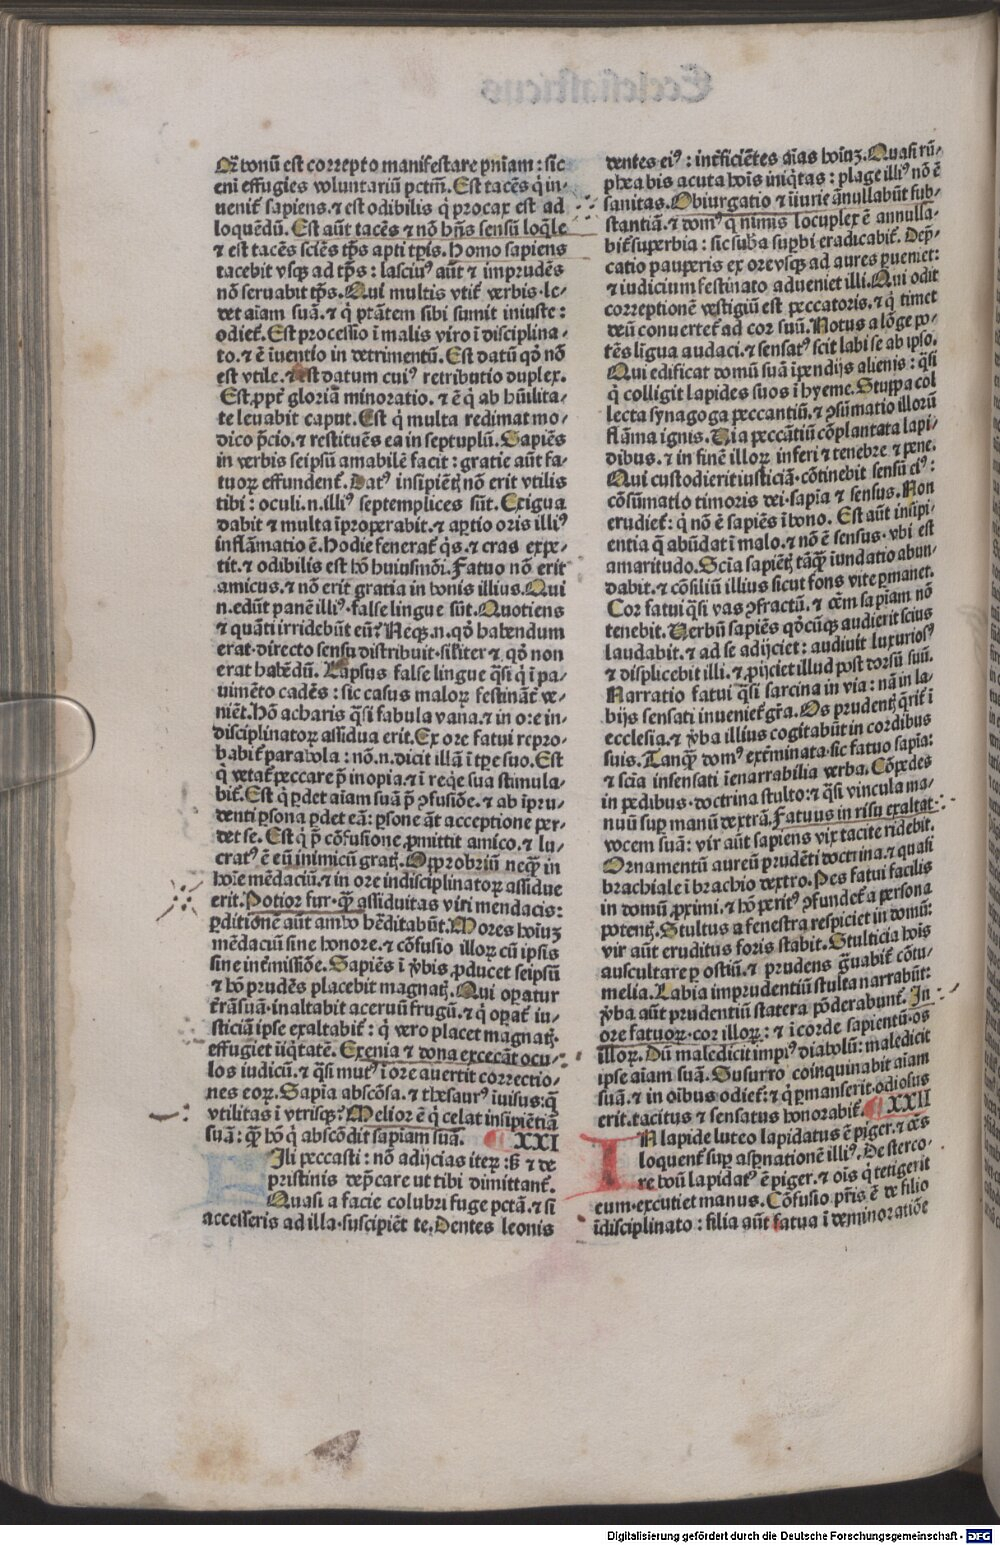 Q̄ bonū est correpto manifestare pn̄iam: sic
eni effugies voluntariū pctm̄. Est tacēs q̇ in-
uenit̄ sapiens. ⁊ est odibilis q̇ procax est ad
loquēdū. Est aūt tacēs ⁊ nō hn̄s sensū loq̄le
⁊ est tacēs sciēs tp̄s apti tp̄is. Homo sapiens
tacebit vsq̄ ad tp̄s: lasciuꝰ aūt ⁊ imprudēs
nō seruabit tp̄s. Qui multis vtit̄ verbis·le-
det aīam suā. ⁊ q̇ ptātem sibi sumit iniuste:
odiet̄. Est processio ī malis viro ī disciplina-
to. ⁊ ē īuentio in detrimentū. Est datū qd̄ nō
est vtile. ⁊ est datum cuiꝰ retributio duplex.
Est ꝓpt̄ gloriā minoratio. ⁊ ē q̇ ab hūilita-
te leuabit caput. Est q̇ multa redimat mo-
dico p̄cio. ⁊ restituēs ea in septuplū. Sapiēs
in verbis seipsū amabilē facit: gratie aūt fa-
tuoꝝ effundent̄. Datꝰ insipiētꝭ nō erit vtilis
tibi: oculi.n.illiꝰ septemplices sūt. Exigua
dabit ⁊ multa īproperabit. ⁊ aptio oris illiꝰ
inflāmatio ē. Hodie fenerat̄ q̇s. ⁊ cras expe-
tit. ⁊ odibilis est hō huiusmōi. Fatuo nō erit
amicus. ⁊ nō erit gratia in bonis illius. Qui
n.edūt panē illiꝰ·false lingue sūt. Quotiens
⁊ quāti irridebūt eū? Neqȝ.n.qd̄ habendum
erat·directo sensu distribuit·silīter ⁊ qd̄ non
erat habēdū. Lapsus false lingue q̄si q̇ ī pa-
uimēto cadēs: sic casus maloꝝ festināt̄ ve-
niēt. Hō acharis q̄si fabula vana. ⁊ in ore in-
disciplinatoꝝ assidua erit. Ex ore fatui repro-
babit̄ parabola: nō.n.dicit illā ī tp̄e suo. Est
q̇ vetat̄ peccare p̄ inopia. ⁊ ī req̇e sua stimula-
bit̄. Est q̇ ꝑdet aīam suā p̄ ꝯfusiōe. ⁊ ab īpru-
denti ꝑsona ꝑdet eā: ꝑsone aūt acceptione per-
det se. Est q̇ p̄ cōfusione ꝓmittit amico. ⁊ lu-
cratꝰ ē eū inimicū gratꝭ. Opprobriū neq̄ in
hoīe mēdaciū. ⁊ in ore indisciplinatoꝝ assidue
erit. Potior fur·q̄ assiduitas viri mendacis:
ꝑditionē aūt ambo hēditabūt. Mores hoīuȝ
mēdaciū sine honore. ⁊ cōfusio illoꝝ cū ipsis
sine inēmissiōe. Sapiēs ī v̇bis ꝓducet seipsū
⁊ hō prudēs placebit magnatꝭ. Qui opatur
t̄rā suā·inaltabit aceruū frugū. ⁊ q̇ opat̄ iu-
sticiā ipse exaltabit̄: q̇ vero placet magnatꝭ.
effugiet iīq̇tatē. Exenia ⁊ dona excecāt ocu-
los iudicū. ⁊ q̄si mutꝰ ī ore auertit correctio-
nes eoꝝ. Sapia abscōsa. ⁊ thesaurꝰ īuisus: q̄
vtilitas ī vtrisqȝ? Melior ē q̇ celat insipiētiā
suā: q̄ hō q̇ abscōdit sapiam suā. ¶ XXI
Ili peccasti: nō adijcias iteꝝ: sꝫ ⁊ de
pristinis dep̄care ut tibi dimittant̄.
Quasi a facie colubri fuge pctā. ⁊ si
accesseris ad illa·suscipiēt te. Dentes leonis
dentes eiꝰ: int̄ficiētes aīas hoīuȝ. Quasi rū-
phea bis acuta hoīs iniq̇tas: plage illiꝰ nō ē
sanitas. Obiurgatio ⁊ iīurie ānullabūt sub-
stantiā. ⁊ domꝰ q̄ nimis locuplex ē annulla-
bit̄ supérbia: sic suba supbi eradicabit̄. Dep̄-
catio pauperis ex ore vsqȝ ad aures pueniet:
⁊ iudicium festinato adueniet illi. Qui odit
correptionē vestigiū est peccatoris. ⁊ q̇ timet
deū conuertet̄ ad cor suū. Notus a lōge po-
tēs līgua audaci. ⁊ sensatꝰ scit labi se ab ipso.
Qui edificat domū suā īpendijs alienis: q̄si
q̇ colligit lapides suos ī hyeme. Stuppa col
lecta synagoga peccantiū. ⁊ ꝯsūmatio illorū
flāma ignis. Via peccātiū cōplantata lapi-
dibus. ⁊ in finē illoꝝ inferi ⁊ tenebre ⁊ pene.
Qui custodierit iusticiā·cōtinebit sensū eiꝰ:
cōsūmatio timoris dei·sapīa ⁊ sensus. Non
erudiet̄: q̇ nō ē sapiēs ī bono. Est aūt insipi-
entia q̄ abūdat ī malo. ⁊ nō ē sensus·vbi est
amaritudo. Scīa sapiētꝭ tāq̄ īundatio abun-
dabit. ⁊ cōsiliū illius sicut fons vite pmanet.
Cor fatui q̄si vas ꝯfractū. ⁊ oēm sapīam nō
tenebit. Verbū sapiēs qd̄cūqȝ audierit scius
laudabit. ⁊ ad se adijciet: audiuit luxuriosꝰ
⁊ displicebit illi. ⁊ ꝓijciet illud post dorsū suū.
Narratio fatui q̄si sarcina in via: nā in la-
bijs sensati inueniet̄ grā. Os prudentꝭ q̄rit̄ ī
ecclesia. ⁊ v̇ba illius cogitabūt in cordibus
suis. Tanqȝ domꝰ ext̄minata·sic fatuo sapīa:
⁊ scīa insensati īenarrabilia verba. Cōpedes
in pedibus·doctrina stulto: ⁊ q̄si vincula ma-
nuū sup manū dextrā. Fatuus in risu exaltat
vocem suā: vir aūt sapiens vix tacite ridebit.
Ornamentū aureū prudēti doctrina. ⁊ quasi
brachiale ī brachio dextro. Pes fatui facilis
in domū ꝓximi. ⁊ hō peritꝰ ꝯfundet̄ a persona
potentꝭ. Stultus a fenestra respiciet in domū:
vir aūt eruditus foris stabit. Stulticia hoīs
auscultare p ostiū. ⁊ prudens g̃uabit̄ cōtu-
melia. Labia imprudentiū stulta narrabūt:
v̇ba aūt prudentiū statera pōderabunt̄. In
ore fatuoꝝ·cor illoꝝ: ⁊ ī corde sapientū·os
illoꝝ. Dū maledicit impiꝰ diabolū: maledicit
ipse aīam suā. Susurro coinquinabit aīam
suā. ⁊ in oībus odiet̄: ⁊ q̇ pmanserit·odiosus
erit. tacitus ⁊ sensatus honorabit̄. ¶ XXII
IN lapide luteo lapidatus ē piger. ⁊ oēs
loquent̄ sup aspnationē illiꝰ. De sterco-
re boū lapidatꝰ ē piger. ⁊ oīs q̇ tetigerit
eum·excutiet manus. Cōfusio p̄ris ē de filio
īdisciplinato: filia aūt fatua ī deminoratiōe
Digitalisierung gefördert durch die Deutsche Forschungsgemeinschaft - DFG